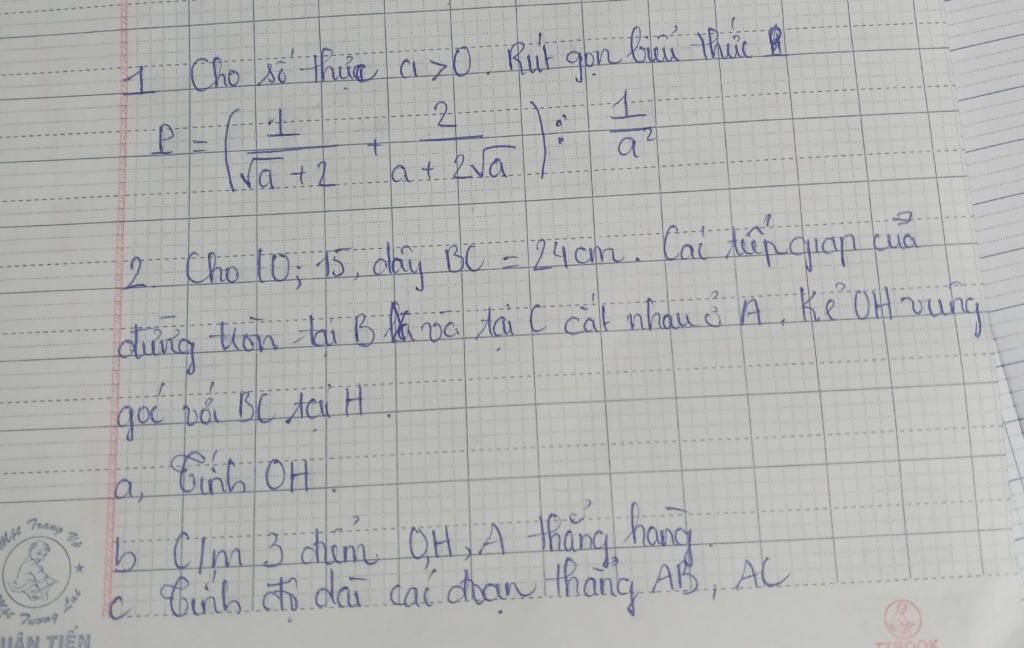 1 Cho số thực a > 0. Rút gọn biểu thức
P = (1/(√a + 2) + 2/(a + 2√a)) : 1/a²
2 Cho (O; 15, dây BC = 24cm. Các tiếp quan của
đường tròn tại B và tại C cắt nhau ở A. Kẻ OH vuông
góc với BC tại H.
a, Tính OH.
b C/m 3 điểm O,H, A thẳng hàng.
c Tính độ dài các đoạn thẳng AB, AC
UÂN TIẾN